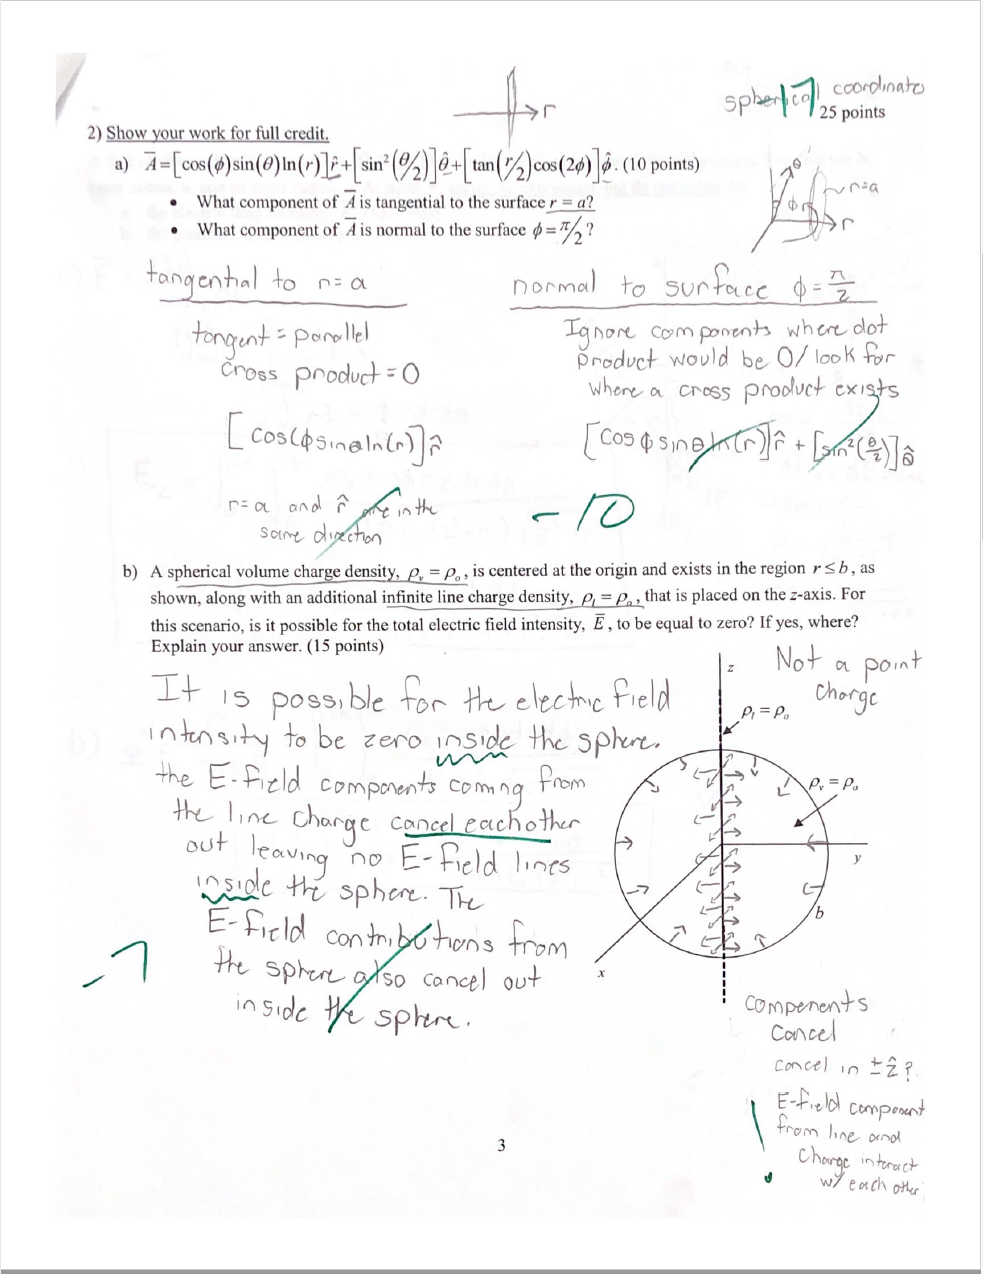 spherical coordinates
25 points
r
2) Show your work for full credit.
a) A̅=[cos(ϕ)sin(θ)ln(r)]r̂+[sin²(θ/2)]θ̂+[tan(r/2)cos(2ϕ)]ϕ̂. (10 points)
• What component of A̅ is tangential to the surface r = a?
• What component of A̅ is normal to the surface ϕ=π/2?
θ
r=a
ϕ
r
tangential to r=a
tangent = parallel
cross product = 0
[cos(ϕsinθln(r)]r̂
r=a and r̂ are in the
same direction
normal to surface ϕ = π/2
Ignore components where dot
product would be 0/look for
where a cross product exists
[cosϕsinθln(r)]r̂ + [sin²(θ/2)]θ̂
-10
b) A spherical volume charge density, ρᵥ = ρₒ, is centered at the origin and exists in the region r ≤ b, as
shown, along with an additional infinite line charge density, ρₗ = ρₒ, that is placed on the z-axis. For
this scenario, is it possible for the total electric field intensity, E̅, to be equal to zero? If yes, where?
Explain your answer. (15 points)
It is possible for the electric field
intensity to be zero inside the sphere.
the E-field components coming from
the line charge cancel eachother
out leaving no E-field lines
inside the sphere. The
E-field contributions from
the sphere also cancel out
inside the sphere.
-7
Not a point
charge
z
ρₗ = ρₒ
ρᵥ = ρₒ
y
b
x
components
cancel
cancel in ±ẑ?
E-field component
from line and
charge interact
w/ each other
3